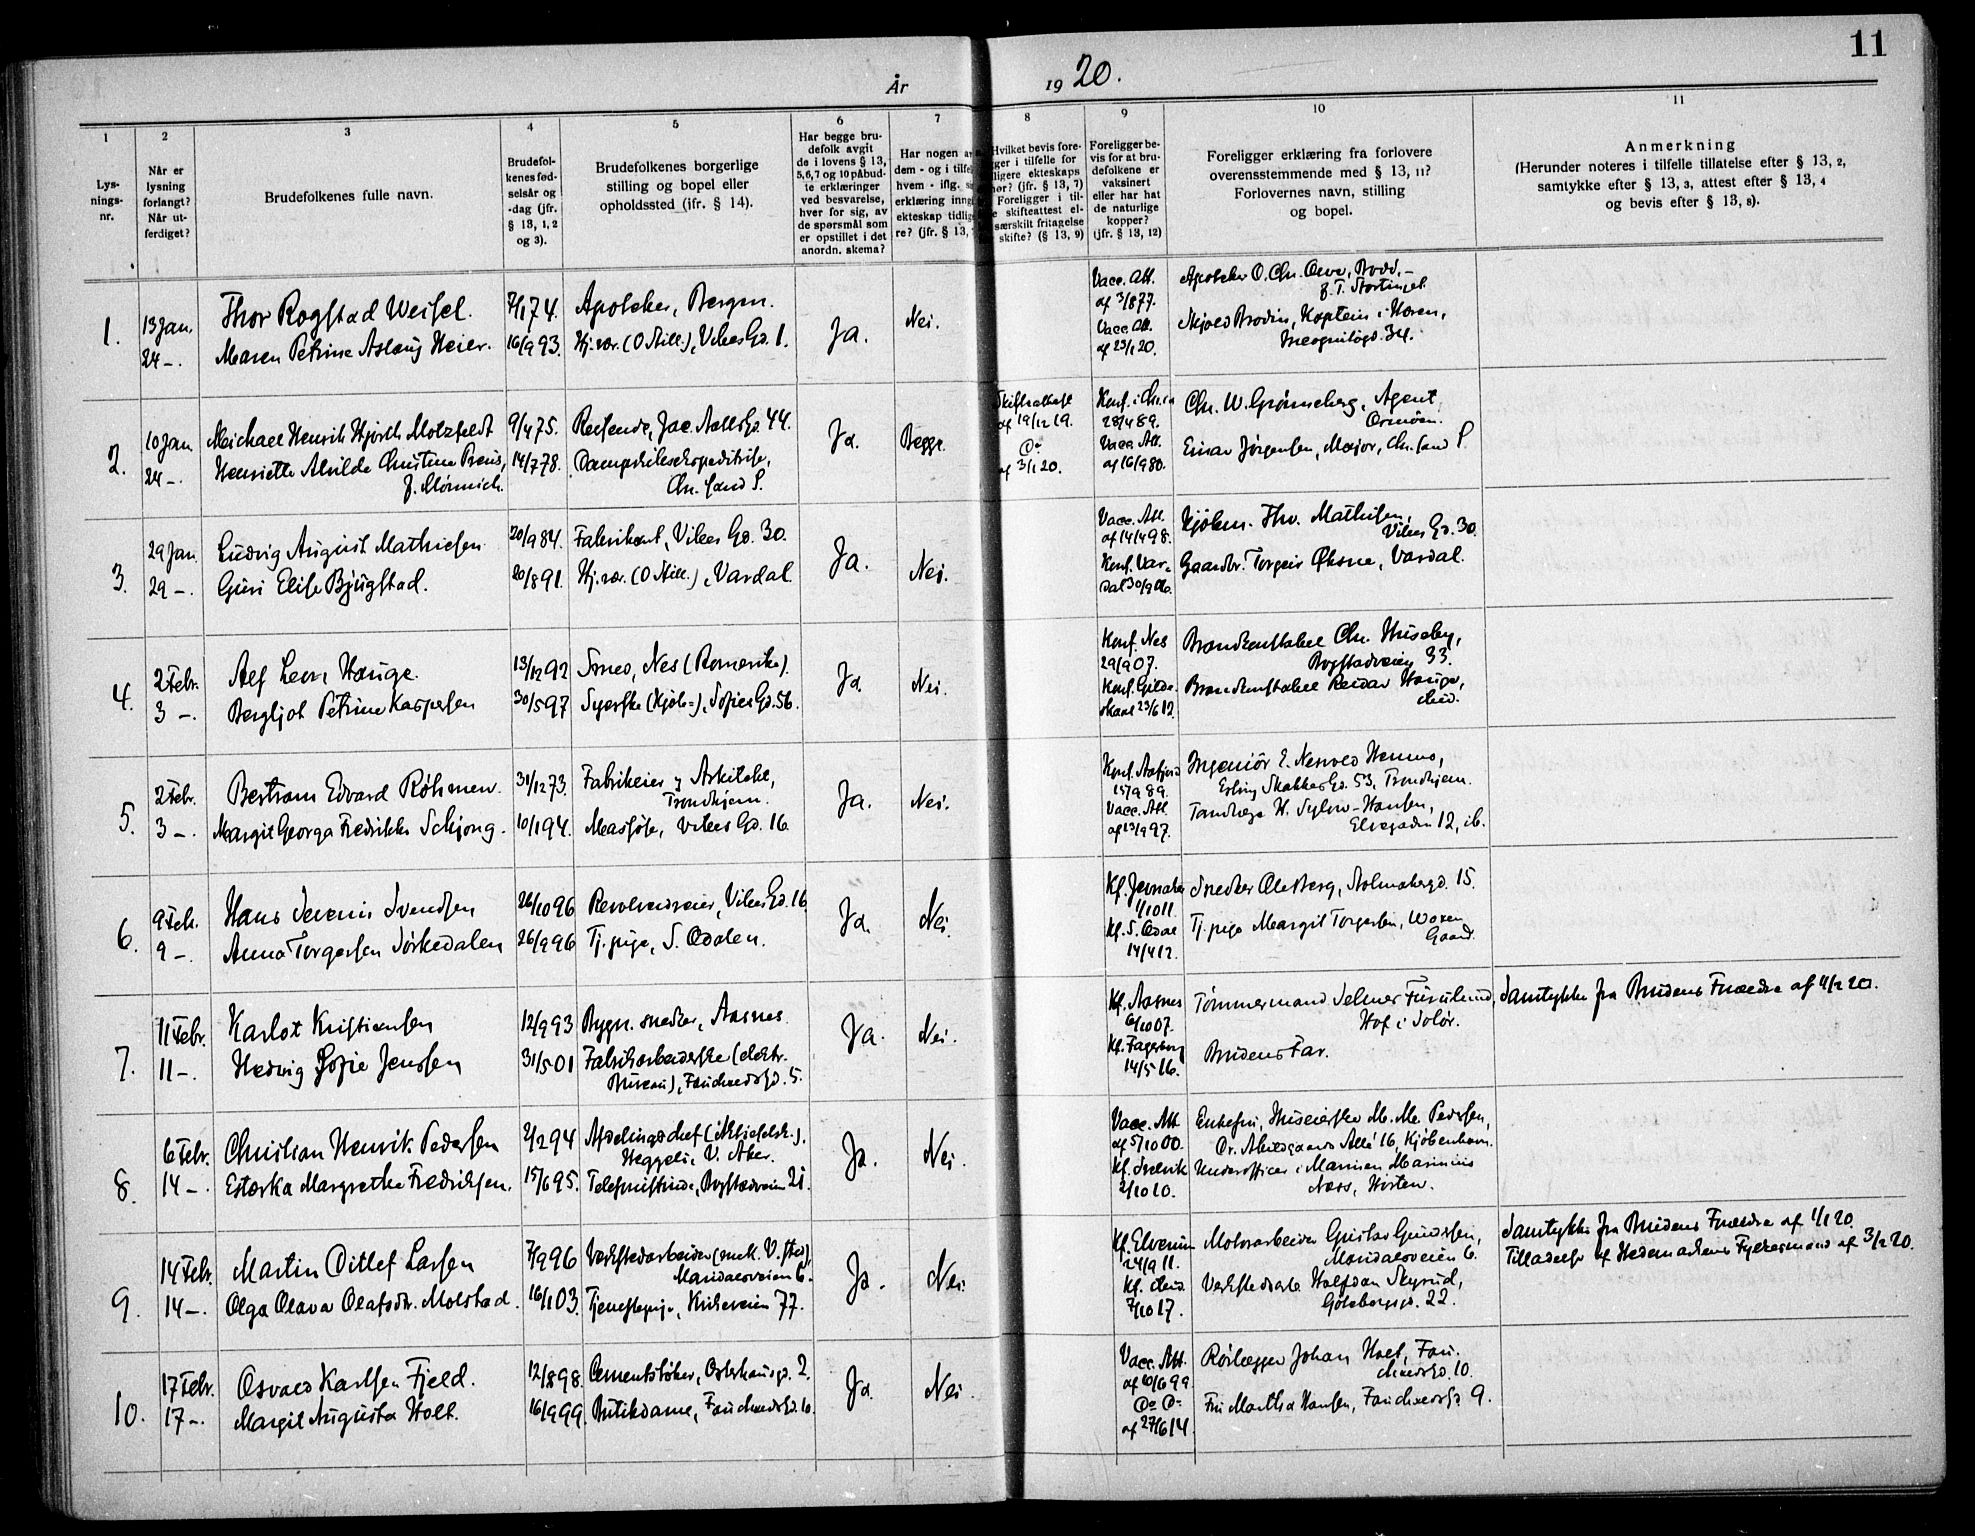 11
År 1920.
1
2
3
4
5
6
7
8
9
10
11
Lys-
nings-
nr.
Når er
lysning
forlangt?
Når ut-
ferdiget?
Brudefolkenes fulle navn.
Brudefol-
kenes fød-
selsår og
-dag (jfr.
§ 13, 1, 2
og 3).
Brudefolkenes borgerlige
stilling og bopel eller
opholdssted (jfr. § 14).
Har begge bru-
defolk avgit
de i lovens § 13,
5,6,7 og 10 påbud-
te erklæringer
ved besvarelse,
hver for sig, av
de spørsmål som
er opstillet i det
anordn. skema?
Har nogen
dem - og i tilfe
hvem - iflg.
erklæring inng
ekteskap tidlig
re? (jfr. § 13,
Hvilket bevis fore-
gger i tilfelle for
ligere ekteskaps
hør? (jfr. § 13, 7)
Foreligger i til-
e skifteattest el-
særskilt fritagelse
skifte? (§ 13, 9)
Foreligger be-
vis for at bru-
defolkene er
vaksinert
eller har hat
de naturlige
kopper?
(jfr. § 13, 12)
Foreligger erklæring fra forlovere
overensstemmende med § 13, 11?
Forlovernes navn, stilling
og bopel.
Anmerkning
(Herunder noteres i tilfelle tillatelse efter § 13, 2,
samtykke efter § 13, 3, attest efter § 13, 4
og bevis efter § 13, 8).
1.
13 Jan.
24 -.
Thor Rogstad Weisel.
Maren Petrine Aslaug Heier.
7/1 74.
16/9 93.
Apoteker, Bergen.
Hj.vær. (O Still.), Vibes Gd. 1.
Ja.
Nei.
Vacc. Att.
af 3/8 77.
Vacc. Att.
af 23/1 20.
Apoteker O. Chr.
f. T. Stortinget.
Kaptein i Hæren,
Incognitogd. 34.
2.
10 Jan.
24 -.
Michael Henrik Hjorth Motzfeldt
Henriette Alvilde Christine Preus,
f. Mönnich.
9/4 75.
14/7 78.
Reisende, Jac. Aalls Gd. 44.
Dampskibsekspeditrise,
Chr.sand S.
Ja.
Begge.
Skifteattest
af 19/12 19.
Do
af 3/1 20.
Konf. i Chr.ia
28/4 89.
Vacc. Att.
af 16/9 80.
Chr. W. Grønneberg, Agent,
Ormöen.
Einar Jørgensen, Major, Chr.sand S.
3.
29 Jan.
29 -.
Ludvig August Mathiesen
Guri Elise Bjugstad.
20/9 84.
20/8 91.
Fabrikant, Vibes Gd. 30.
Hj.vær. (O Still.), Vardal.
Ja.
Nei.
Vacc. Att.
af 14/4 98.
Konf. Var-
dal 30/9 06.
Kjöbm. Thv. Mathisen,
Vibes Gd. 30.
Gaardbr. Torgeir Øksne, Vardal.
4.
2 Febr.
3 -.
Alf Levi Hauge.
Bergljot Petrine Kaspersen
13/12 92
30/5 97
Smed, Nes (Romerike).
Syerske (Kjole-), Sofies Gd. 56.
Ja.
Nei.
Konf. Nes
29/9 07.
Konf. Gilde-
skaal 23/6 12.
Brandkonstabel Chr. Huseby,
Bogstadveien 33.
Brandkonstabel Reidar Hauge,
ibid.
5.
2 Febr.
3 -.
Bertram Edvard Röhmen.
Margit Georga Fredrikke Schjong.
31/12 73.
10/1 94.
Fabrikeier og Arkitekt,
Trondhjem.
Massöse, Vibes Gd. 16.
Ja.
Nei.
Konf. Aafjord
15/9 89.
Vacc. Att.
af 13/9 97.
Ingeniör E. Nesvold Hemmo,
Erling Skakkes Gd. 53, Trondhjem.
Tandlæge H. Sylow-Hansen,
Elvegaden 12, ib.
6.
9 Febr.
9 -.
Hans Severin Svendsen
Anna Torgersen Sörkedalen
26/10 96
26/9 96
Revolverdreier, Vibes Gd. 16.
Tj. pige, S. Odalen.
Ja.
Nei.
Kf. Jevnaker
1/10 11.
Kf. S. Odal
14/4 12.
Snedker Ole Berg, Holmabergd. 15.
Tj. pige Margit Torgersen, Woxen
Gaard.
7.
11 Febr.
11 -.
Karlot Kristiansen
Hedvig Sofie Jenssen
12/9 93
31/5 01
Bygn. snedker, Aasnes.
Fabrikarbeiderske (elektr.
Bureau), Fauchalds Gd. 5.
Ja.
Nei.
Kf. Aasnes
6/10 07.
Kf. Fagerborg
14/5 16.
Tömmermand Selmer Furulund,
Hof i Solör.
Brudens Far.
Samtykke fra Brudens Forældre af 4/2 20.
8.
6 Febr.
14 -.
Christian Henrik Pedersen
Estærka Margrethe Fredriksen.
2/2 94
15/6 95.
Afdelingschef (Aktieselsk.).
Heggeli, V. Aker.
Telefonistinde, Bogstadveien 21.
Ja.
Nei.
Vacc. Att.
af 5/10 00.
Kf. Svelvik
2/10 10.
Enkefru, Huseierske M. M. Pedersen,
Dr. Abildgaards Allé 16, Kjöbenhavn.
Underofficer i Marinen Marinius
Næss, Horten.
9.
14 Febr.
14 -.
Martin Ditlef Larsen
Olga Olava Olafsdtr. Molstad.
7/9 96
16/1 03.
Verkstedarbeider (mek. V.sted),
Maridalsveien 6.
Tjenestepige, Kirkeveien 77.
Ja.
Nei.
Kf. Elverum
24/9 11.
Kf. ibid.
7/10 17.
Motorarbeider Gustav Gundersen,
Maridalsveien 6.
Verkstedarb. Halfdan Skyrud,
Göteborggd. 22.
Samtykke fra Brudens Forældre af 1/1 20.
Tilladelse af Hedemarkens Fylkesmand af 3/2 20.
10.
17 Febr.
17 -.
Osvald Karlsen Fjeld.
Margit Augusta Holt.
12/8 98.
16/9 99.
Cementstöber, Osterhausgd. 2.
Butikdame, Fauchalds Gd. 10.
Ja.
Nei.
Vacc. Att.
af 10/6 99
Do Do
af 27/6 14.
Rörlægger Johan Holt, Fau-
chaldsgd. 10.
Fru Martha Hansen, Fauchaldsgd. 9.